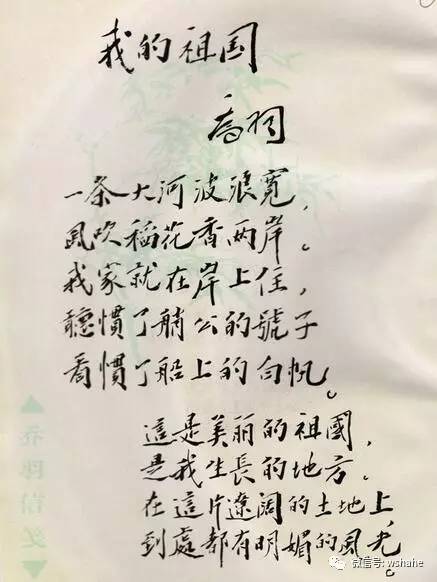 我的祖国
喬羽
一条大河波浪寬，
風吹稻花香兩岸。
我家就在岸上住，
聽慣了艄公的號子
看慣了船上的白帆。
這是美丽的祖國，
是我生長的地方。
在這片遼阔的土地上，
到處都有明媚的風光。
微信号: wshahe